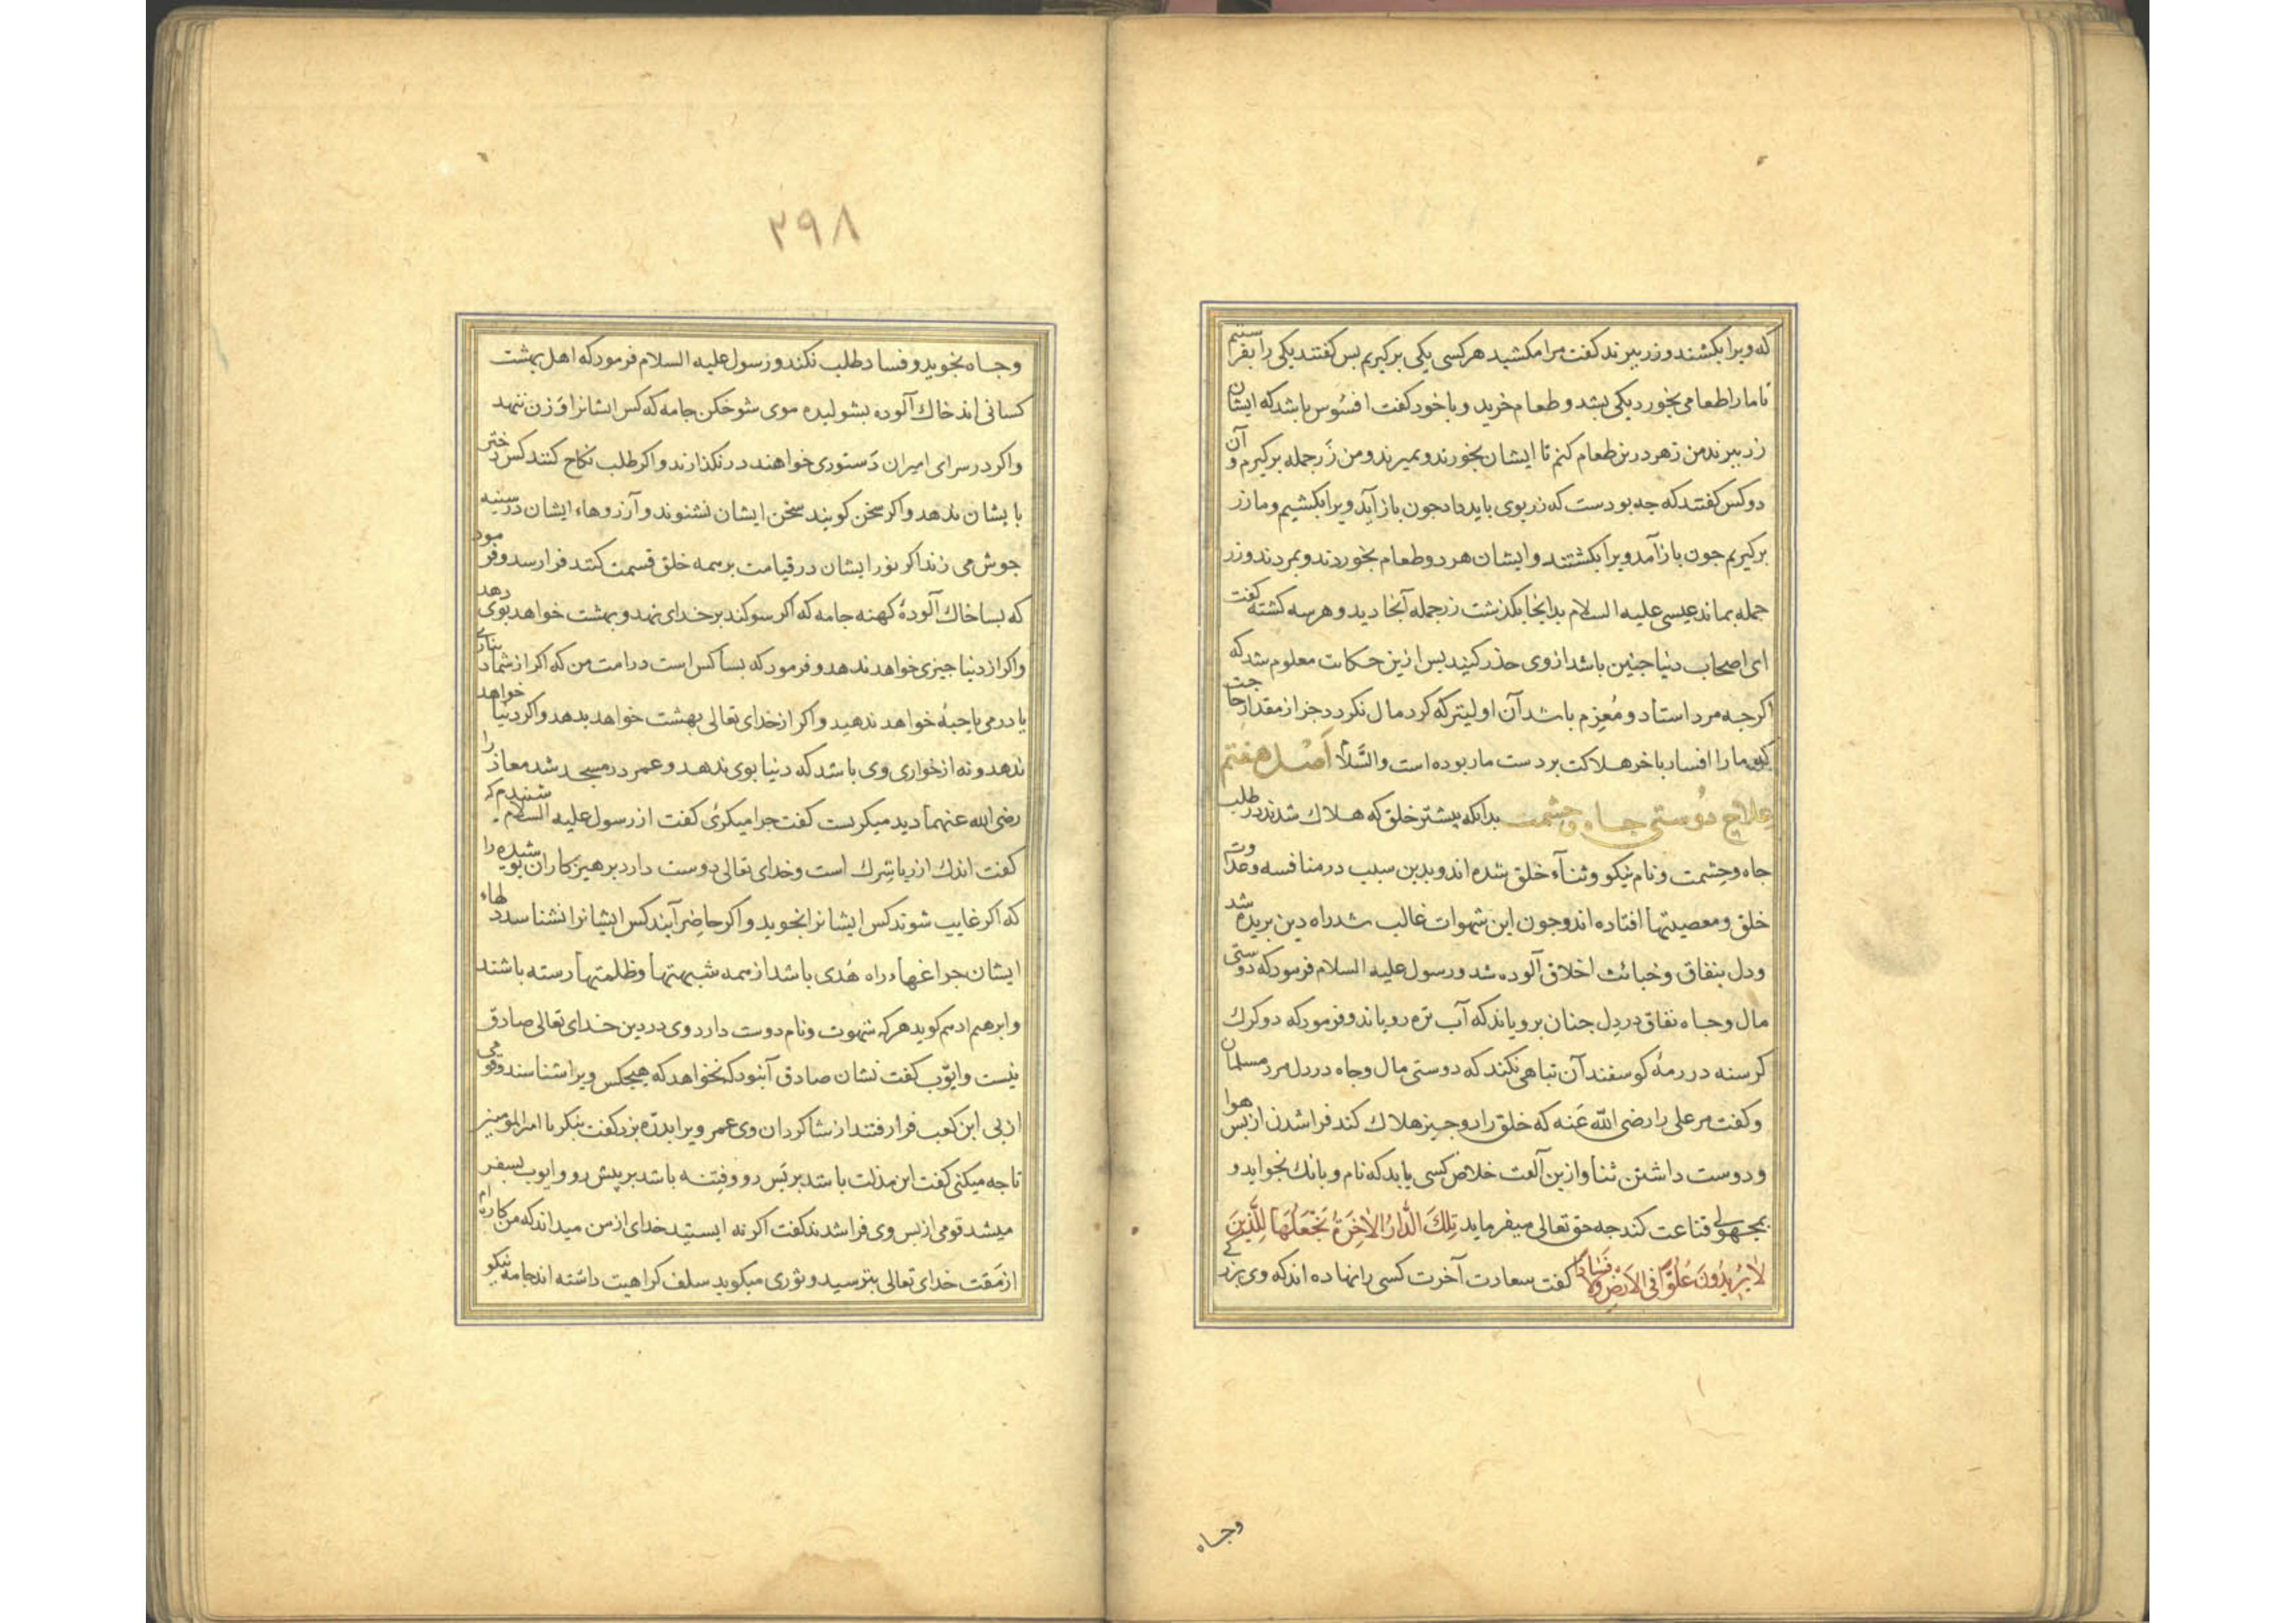 که ویرا بکشند و زر ببرند کفت مرا مکشید هرکسی یکی برکیریم بس کفتند یکی را بفرستیم
تا ما را طعامی بخورد یکی بشد و طعام خرید و با خود کفت افسُوس باشد که ایشان
زر ببرند من زهر درین طعام کنم تا ایشان بخورند و بمیرند و من زر جمله برکیرم و آن
دو کس کفتند که جه بودست که زر بوی باید داد جون باز آید ویرا بکشیم و ما زر
برکیریم جون باز آمد ویرا بکشتند و ایشان هر دو طعام بخوردند و بمردند و زر
جمله بماند عیسی علیه السلام بدانجا بکذشت زر جمله آنجا دید و هر سه کشته کفت
ای اصحاب دنیا جنین باشد از وی حذر کنید بس ازین حکایت معلوم شد که
اکر جه مرد استاد و مُعزم باشد آن اولیتر که کرد مال نکردد جز از مقدار حاجت
که ما را افسار باخر هلاکت بر دست مار بوده است والسَّلام اَصْل هفتم
علاج دُوستی جاه و حشمت بدانکه بیشتر خلق که هلاک شدند در طلب
جاه و حِشمت و نام نیکو و ثنآء خلق شده اند و بدین سبب در منافسه و عداوت
خلق و معصیتها افتاده اند و جون این شهوات غالب شد راه دین بریده شد
و دل بنفاق و خبائث اخلاق آلوده شد و رسول علیه السلام فرمود که دوستی
مال و جاه نفاق در دل جنان برویاند که آب تره رویاند و فرمود که دو کرک
کرسنه در رمهٔ کوسفند آن تباهی نکند که دوستی مال و جاه در دل مرد مسلمان
و کفت مر علی را رضی الله عَنه که خلق را دو جیز هلاک کند فرا شدن از بس هوا
و دوست داشتن ثنا و ازین آلفت خلاص کسی یابد که نام و بانک نجوید و
بمجهولی قناعت کند جه حق تعالی میفرماید تِلكَ الدَّارُ الاٰخِرَةُ نَجْعَلُهَا لِلَّذِینَ
لاٰ یُرِیدُونَ عُلُوًّا فِی الاَرْضِ وَلاٰ فَسَادًا کفت سعادت آخرت کسی را نهاده اند که وی بزرکی
وجاه
٢٩٨
و جاه نجوید و فساد طلب نکند و رسول علیه السلام فرمود که اهل بهشت
کسانی اند خاک آلوده بشولیده موی شوخکن جامه که کس ایشانرا وَزن ننهد
و اکر در سرای امیران دَستوری خواهند در نکذارند و اکر طلب نکاح کنند کس دختر
بایشان ندهد و اکر سخن کویند سخن ایشان نشنوند و آرزوهاء ایشان در سینه
جوش می زند اکر نور ایشان در قیامت بر همه خلق قسمت کنند فرا رسد و فرمود
که بسا خاک آلودهٔ کهنه جامه که اکر سوکند بر خدای نهد و بهشت خواهد بوی دهد
و اکر از دنیا جیزی خواهد ندهد و فرمود که بسا کس است در امت من که اکر از شما دیناری
یا درمی یا حبهٔ خواهد ندهید و اکر از خدای تعالی بهشت خواهد بدهد و اکر دنیا خواهد
ندهد و نه از خواری وی باشد که دنیا بوی ندهد و عمر در مسجد شد معاذ را
رضی الله عنهما دید میکریست کفت جرا میکرئی کفت از رسول علیه السلام شنیدم که
کفت اندک از ریا شِرک است و خدای تعالی دوست دارد برهیز کاران بوشیده را
که اکر غایب شوند کس ایشانرا نجوید و اکر حاضر آیند کس ایشانرا نشناسد دلهاء
ایشان جراغهاء راه هُدی باشد از همه شبهتها و ظلمتها رسته باشند
و ابرهیم ادهم کوید هر که شهوت و نام دوست دارد وی در دین خدای تعالی صادق
نیست و ایوّب کفت نشان صادق آنبود که نخواهد که هیجکس ویرا شناسد و قومی
از بی ابن کعب فرا رفتند از شاکردان وی عمر ویرا بدرّه بزد کفت بنکر یا امیر المومنین
تا جه میکنی کفت این مذلت باشد بر بَس رو و فِتنه باشد بر پیش رو و ایوب بسفر
میشد قومی از بس وی فرا شدند کفت اکر نه ایستید خدای از من میداند که من کاره ام
از مَقت خدای تعالی بترسید و ثوری میکوید سلف کراهیت داشته اند جامه نیکو